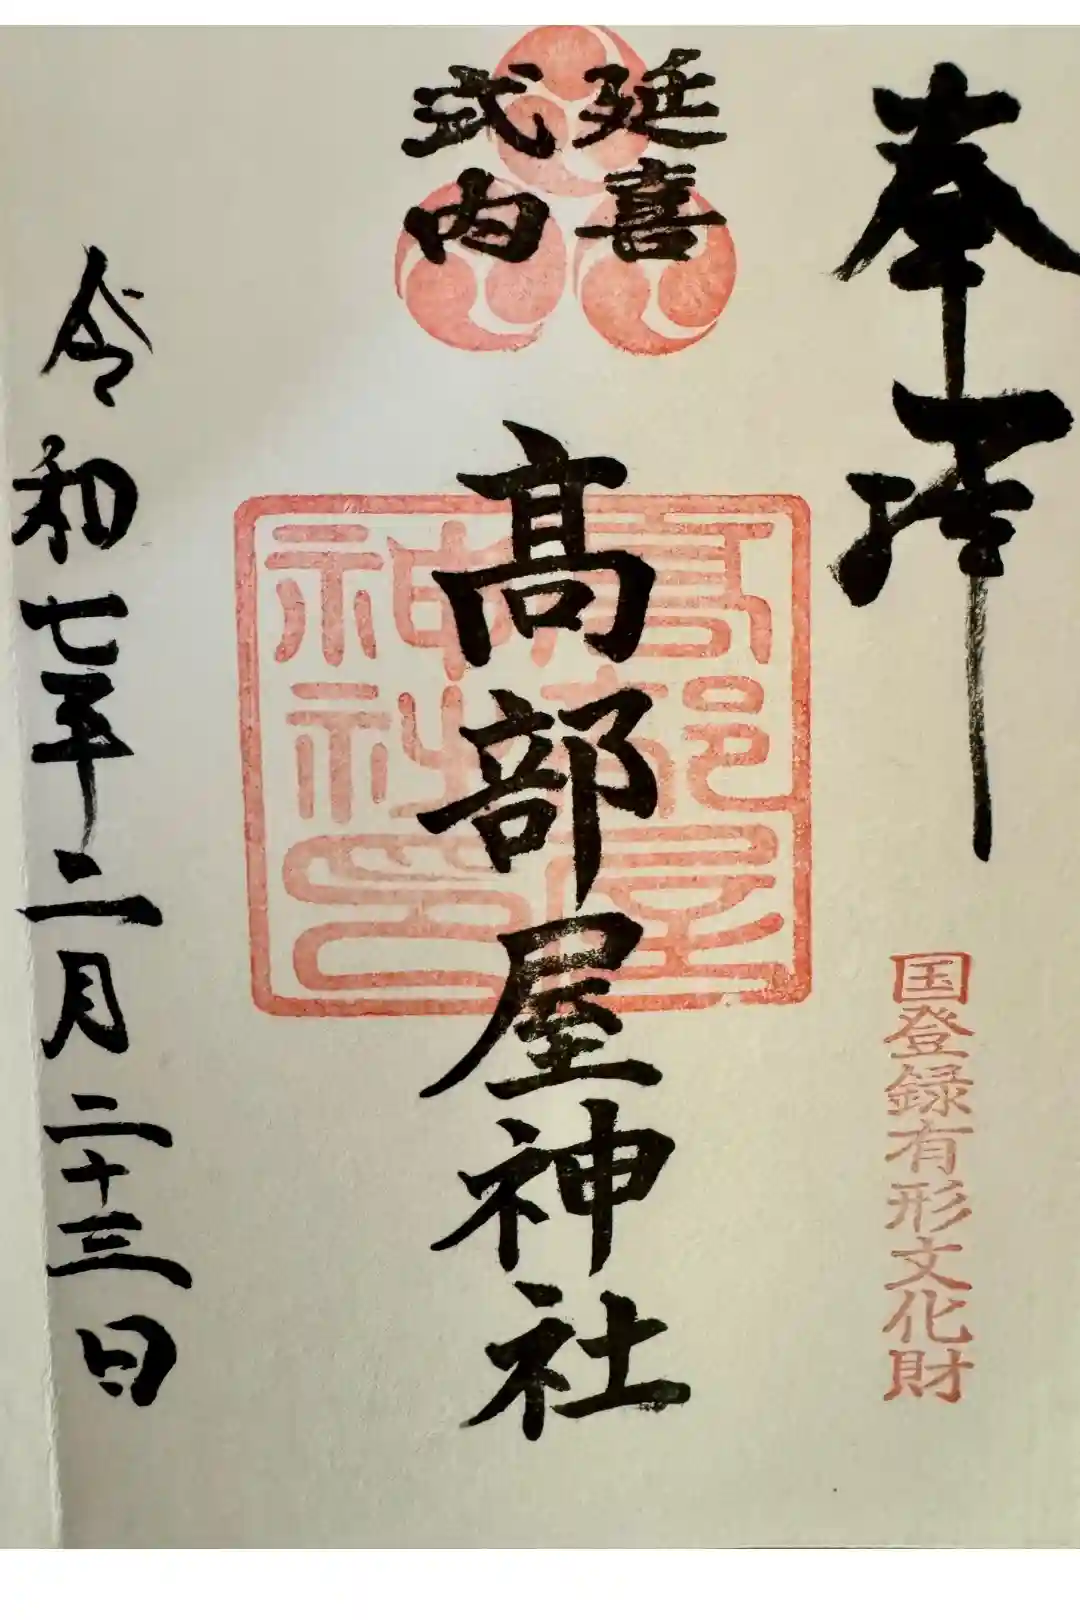 奉拝
国登録有形文化財
延喜
式内
髙部屋神社
高部屋
神社印
令和七年二月二十三日